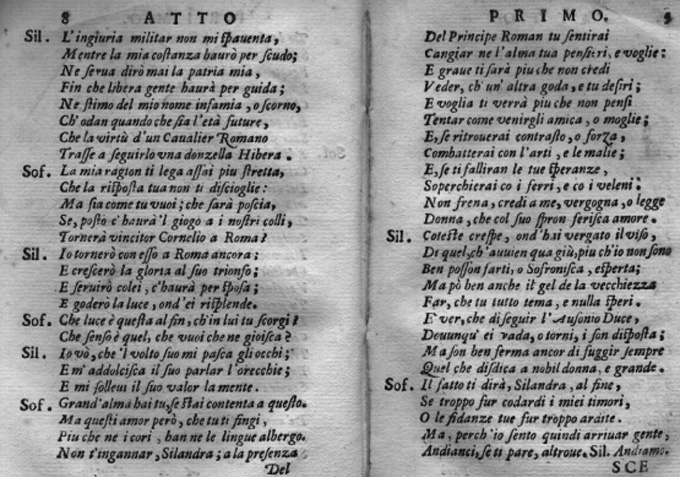 8 ATTO
Sil. L'ingiuria militar non mi spauenta,
Mentre la mia costanza haurò per scudo;
Ne serua dirò mai la patria mia,
Fin che libera gente haurà per guida;
Ne stimo del mio nome infamia, o scorno,
Ch'odan quando che sia l'età future,
Che la virtù d'un Caualier Romano
Trasse a seguirlo vna donzella Hibera.
Sof. La mia ragion ti lega assai piu stretta,
Che la risposta tua non ti discioglie:
Ma sia come tu vuoi; che sarà poscia,
Se, posto c'haurà'l giogo a i nostri colli,
Tornerà vincitor Cornelio a Roma?
Sil. Io tornerò con esso a Roma ancora;
E crescerò la gloria al suo trionfo;
E seruirò colei, c'haurà per sposa;
E goderò la luce, ond'ei risplende.
Sof. Che luce è questa al fin, ch'in lui tu scorgi?
Che senso è quel, che vuoi che ne gioisca?
Sil. Io vò, che'l volto suo mi pasca gli occhi;
E m'addolcisca il suo parlar l'orecchie;
E mi solleui il suo valor la mente.
Sof. Grand'alma hai tu, se stai contenta a questo.
Ma questi amor però, che tu ti fingi,
Piu che ne i cori, han ne le lingue albergo.
Non t'ingannar, Silandra; a la presenza
Del
PRIMO.
Del Principe Roman tu sentirai
Cangiar ne l'alma tua pensieri, e voglie:
E graue ti sarà piu che non credi
Veder, ch'un'altra goda, e tu desiri;
E voglia ti verrà piu che non pensi
Tentar come venirgli amica, o moglie;
E, se ritrouerai contrasto, o forza,
Combatterai con l'arti, e le malie;
E, se ti falliran le tue speranze,
Soperchierai co i ferri, e co i veleni:
Non frena, credi a me, vergogna, o legge
Donna, che col suo spron ferisca amore.
Sil. Coteste crespe, ond'hai vergato il viso,
Di quel, ch'auuien qua giù, piu ch'io non sono
Ben posson farti, o Sofronisca, esperta;
Ma pò ben anche il gel de la vecchiezza
Far, che tu tutto tema, e nulla speri.
E' ver, che di seguir l'Ausonio Duce,
Douunqu' ei vada, o torni, i son disposta;
Ma son ben ferma ancor di fuggir sempre
Quel che disdica a nobil donna, e grande.
Sof. Il fatto ti dirà, Silandra, al fine,
Se troppo fur codardi i miei timori,
O le fidanze tue fur troppo ardite.
Ma, perch'io sento quindi arriuar gente,
Andianci, se ti pare, altroue. Sil. Andiamo.
SCE